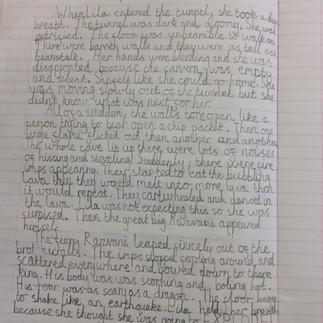 When Lila entered the tunnel, she took a deep
breath. The tunnel was dark and gloomy. She was
petrified. The floor was unbearable to walk on.
There were barren walls and they were as tall as
beanstalk. Her hands were bleeding and she was
disappointed because the cavern was empty
and silent. She felt like she could go home. She
was moving slowly out of the tunnel but she
didn't know what was next for her.
All of a sudden, the walls tore open like a
person trying to tear open a chip packet. Then one
flame flicked out then another and another.
The whole cave lip up there were lots of noises
of hissing and sizzling. Suddenly, there were fire
imps appearing. They started to eat the bubbling
lava then they would melt into more lava then
it would repeat. They cartwheeled and danced in
the lava. Lila was not expecting this so she was
surprised. Then the great big Razvani appeared
himself.
The fiery Razvani leaped fiercely out of the
walls. The imps stopped copying around and
scattered everywhere and bowed down to there
king. His body was was scorching and boiling hot.
His roar was as scary as a dragon. The floor began
to shake like an earthquake. Lila held her breath
because she thought she was going to